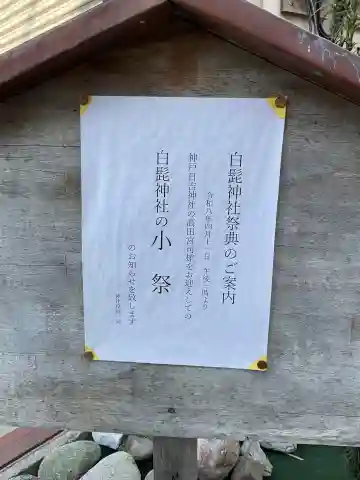 白髭神社祭典のご案内
令和八年四月十一日 午後二時より
神戸日吉神社の濃田宮司様をお迎えしての
白髭神社の小祭
のお知らせを致します